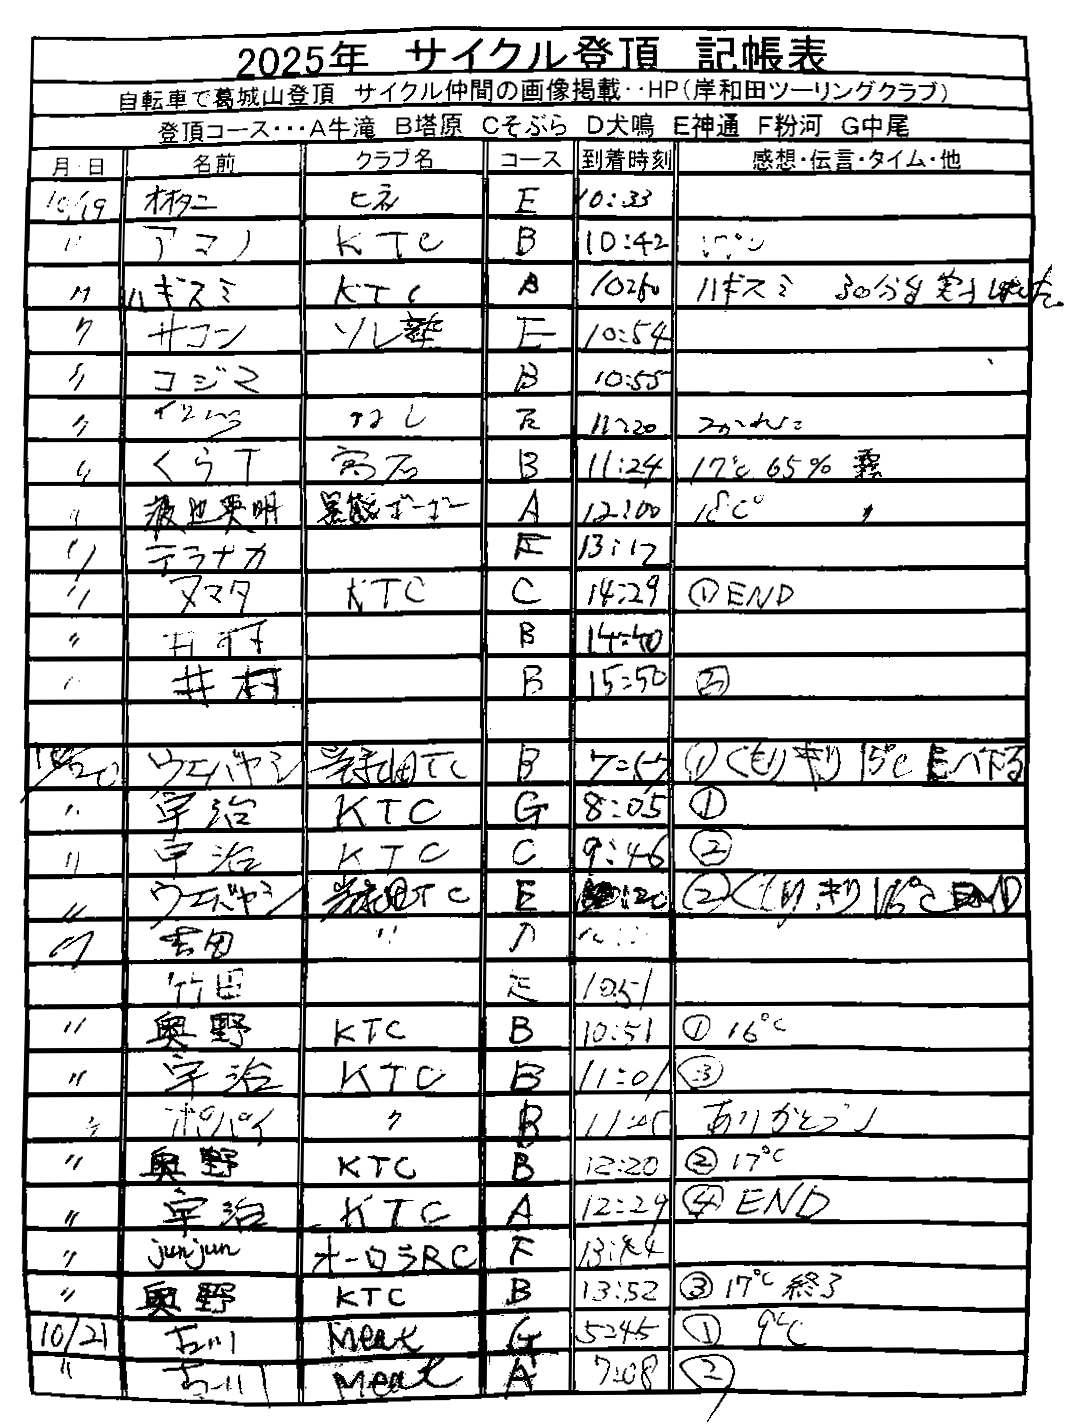 2025年 サイクル登頂 記帳表
自転車で葛城山登頂 サイクル仲間の画像掲載‥HP(岸和田ツーリングクラブ)
登頂コース･･･A牛滝 B塔原 Cそぶら D犬鳴 E神通 F粉河 G中尾
月・日 名前 クラブ名 コース 到着時刻 感想・伝言・タイム・他
10/19 オオタニ ヒネ E 10:33
〃 アマノ KTC B 10:42
〃 ハギスミ KTC A ハギスミ 30分
〃 サコン ソレ E 10:54
〃 コジマ B 10:55
〃 なし E 11:20 つかれた
〃 くらT 高石 B 11:24 17℃ 65% 霧
〃 英明 A 12:00 18℃ 〃
〃 テラナカ F 13:17
〃 ヌマタ KTC C 14:29 ①END
〃 井村 B 14:40
〃 井村 B 15:50
10/20 ウエバヤシ 岸和田TC B 7:57 ①くもり きり 15℃
〃 宇治 KTC G 8:05 ①
〃 宇治 KTC C 9:46 ②
〃 ウエバヤシ 岸和田TC E ②くもり きり 16℃ END
〃 吉田 〃
竹田 E 10:51
〃 奥野 KTC B 10:51 ① 16℃
〃 宇治 KTC B 11:01 ③
〃 ポパイ 〃 B ありがとう
〃 奥野 KTC B 12:20 ② 17℃
〃 宇治 KTC A 12:29 ④ END
〃 junjun オーロラRC F
〃 奥野 KTC B 13:52 ③ 17℃ 終了
10/21 古川 Meat G 5:45 ① 9℃
〃 古川 Meat A 7:08 ②